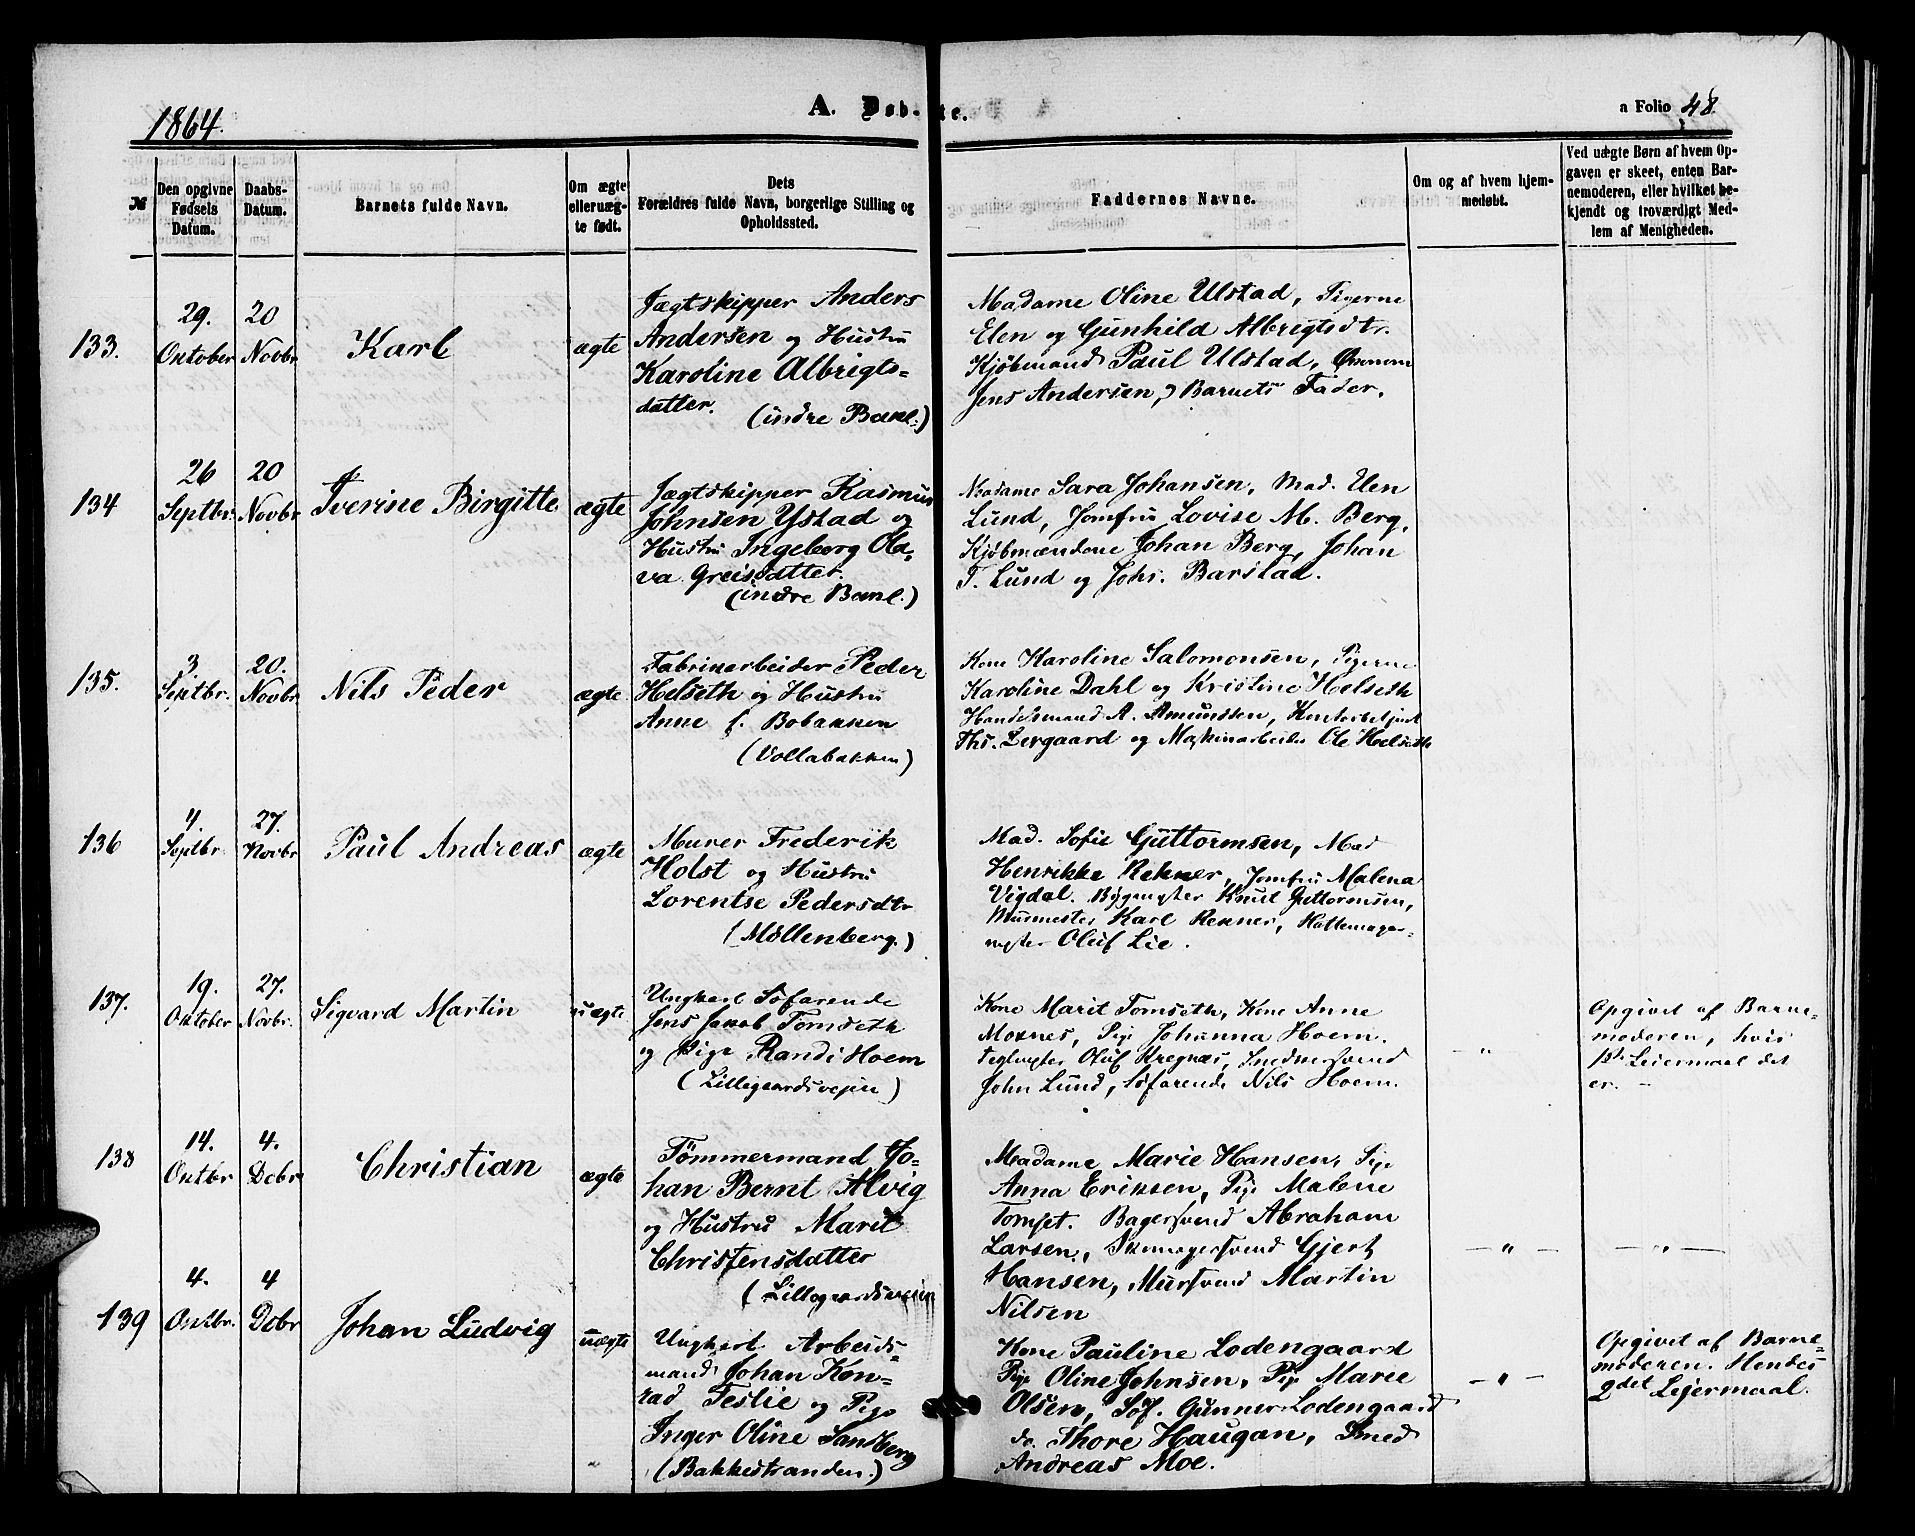 1864.
A. Døbte.
n Folio 48
№
Den opgivne Fødsels Datum.
Daabs-Datum.
Barnets fulde Navn.
Om ægte eller uægte født.
Dets Forældres fulde Navn, borgerlige Stilling og Opholdssted.
Faddernes Navne.
Om og af hvem hjemmedøbt.
Ved uægte Børn af hvem Opgaven er skeet, enten Barnemoderen, eller hvilket bekjendt og troværdigt Medlem af Menigheden.
133.
29. Oktober
20 Novbr
Karl
ægte
Jægtskipper Anders
Andersen og Hustru
Karoline Albrigts=
datter.
(indre Bakl:)
Madame Oline Ulstad, Pigerne
Elen og Gunhild Albrigtsdtr.
Kjøbmand Paul Ulstad,
Jens Andersen, Barnets Fader.
134
26 Septbr.
20 Novbr
Iverine Birgitte
ægte
Jægtskipper Rasmus
Johnsen Ystad og
Hustru Ingeborg Ola=
va Greisdatter.
(indre Bakl.)
Madame Sara Johansen, Mad.
Lund, Jomfru Lovise M. Berg,
Kjøbmændene Johan Berg, Johan
T. Lund og Johs. Barstad.
135.
3. Septbr.
20. Novbr
Nils Peder
ægte
Fabrikarbeider Peder
Helseth og Hustru
Anne f. Bobakken
(Vollabakken)
Kone Karoline Salomonsen, Pigerne
Karoline Dahl og Kristine Helseth
Handelsmand A. Amundsen, Kontorbetjent
Ths. Lergaard og Maskinarbeider Ole Helseth
136
4. Septbr
27. Novbr
Paul Andreas
ægte
Murer Frederik
Holst og Hustru
Lorentse Pedersdtr
(Møllenberg.)
Mad. Sofie Guttormsen, Mad
Henrikke Rekner, Jomfru Malena
Vigdal. Bygmester Knut Guttormsen,
Murmester Karl Rekner, Hattemager=
mester Oluf Lie.
137.
19. Oktober
27. Novbr.
Sigvard Martin
uægte
Ungkarl Søfarende
Jens Jakob Tomseth
og Pige Randi Hoem
(Lillegaardsvejen)
Kone Marit Tomseth, Kone Anne
Moxnes, Pige Johanna Hoem.
Teglmester Oluf Kregnæs, Smedmersvend
John Lund, Søfarende Nils Hoem.
— „
Opgivet af Barne=
moderen, hvis
1ste Leiermaal det
er. —
138
14. Oktbr
4. Debr
Christian
ægte
Tømmermand Jo=
han Bernt Alvig
og Hustru Marit
Christensdatter
(Lillegaardsveien
Madame Marie Hansen, Pige
Anna Eriksen, Pige Malene
Tomset. Bagersvend Abraham
Larsen, Skomagersvend Gjert
Hansen, Mursvend Martin
Nilsen
— „ —
— „ —
139
4. Oktbr.
4 Debr
Johan Ludvig
uægte
Ungkarl Arbeids=
mand Johan Kon=
rad Teslie og Pige
Inger Oline Sandberg
(Bakkestranden.)
Kone Pauline Lodengaard
Pige Oline Johnsen, Pige Marie
Olsen, Søf. Gunner Lodengaard
do. Thore Haugan, Smed
Andreas Moe.
— „ —
Opgivet af Barne=
moderen. Hendes
2det Leiermaal.